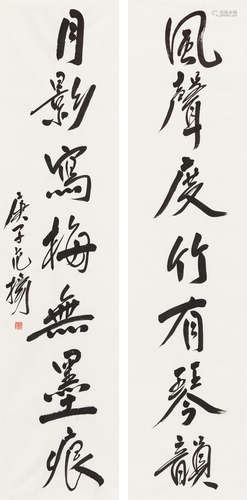 風聲度竹有琴韻
月影寫梅無墨痕
庚子范擴